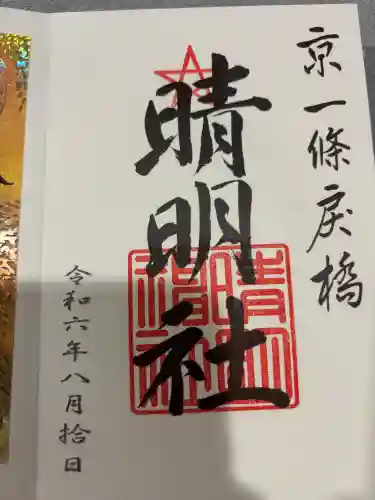 京一條戻橋
晴明社
晴明神社
令和六年八月拾日